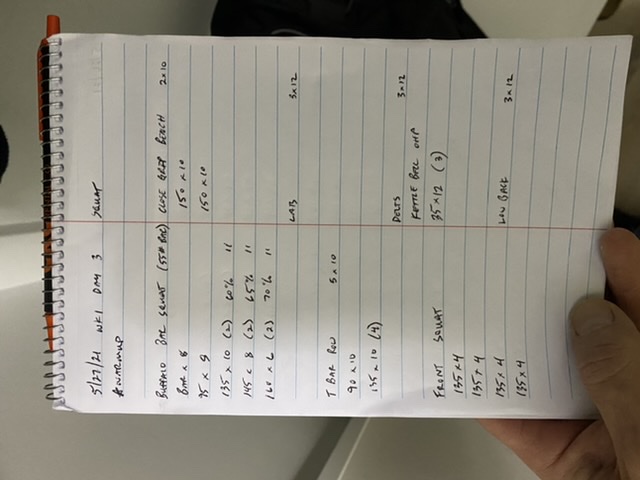 5/27/21 WK1 DAY 3 SQUAT
#WARMUP
BUFFALO BAR SQUAT (55# BAR) CLOSE GRIP BENCH 2x10
BAR x 8 150 x 10
95 x 9 150 x 10
135 x 10 (2) 60% 11
145 x 8 (2) 65% 11
160 x 6 (2) 70% 11
LATS 3x12
T BAR ROW 5x10
90 x 10
135 x 10 (4)
DELTS 3x12
KETTLE BELL OHP
FRONT SQUAT 35x12 (3)
135 x 4
135 x 4
135 x 4 LOW BACK 3x12
135 x 4